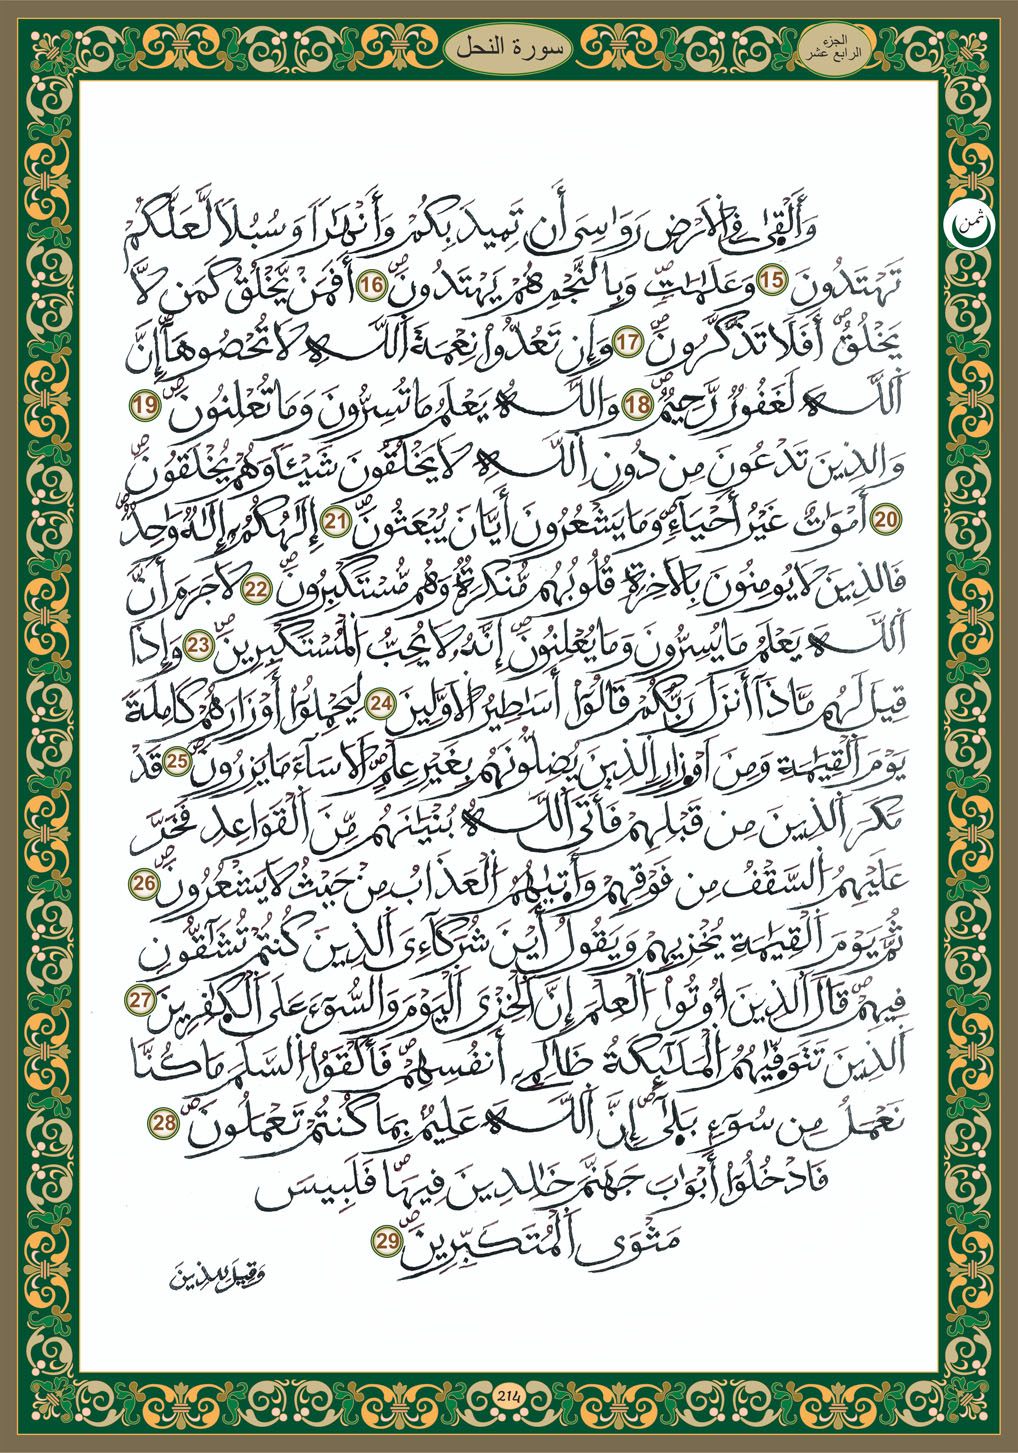 سورة النحل
الجزء
الرابع عشر
ثمن
وَأَلْقَىٰ فِي الْأَرْضِ رَوَٰسِيَ أَن تَمِيدَ بِكُمْ وَأَنْهَٰرًا وَسُبُلًا لَّعَلَّكُمْ
تَهْتَدُونَ 15 وَعَلَٰمَٰتٍ صـ وَبِالنَّجْمِ هُمْ يَهْتَدُونَ صـ 16 أَفَمَنْ يَّخْلُقُ كَمَن لَّا
يَخْلُقُ صـ أَفَلَا تَذَّكَّرُونَ صـ 17 وَإِن تَعُدُّوا نِعْمَةَ اللَّهِ لَا تُحْصُوهَا صـ إِنَّ
اللَّهَ لَغَفُورٌ رَّحِيمٌ صـ 18 وَاللَّهُ يَعْلَمُ مَا تُسِرُّونَ وَمَا تُعْلِنُونَ صـ 19
وَالذِينَ تَدْعُونَ مِن دُونِ اللَّهِ لَا يَخْلُقُونَ شَيْـًٔا وَهُمْ يُخْلَقُونَ صـ
20 أَمْوَٰتٌ غَيْرُ أَحْيَاءٍ صـ وَمَا يَشْعُرُونَ أَيَّانَ يُبْعَثُونَ صـ 21 إِلَٰهُكُمُ إِلَٰهٌ وَٰحِدٌ صـ
فَالذِينَ لَا يُومِنُونَ بِالَاخِرَةِ قُلُوبُهُم مُّنكِرَةٌ وَهُم مُّسْتَكْبِرُونَ صـ 22 لَا جَرَمَ أَنَّ
اللَّهَ يَعْلَمُ مَا يُسِرُّونَ وَمَا يُعْلِنُونَ صـ إِنَّهُ لَا يُحِبُّ الْمُسْتَكْبِرِينَ صـ 23 وَإِذَا
قِيلَ لَهُم مَّاذَا أَنزَلَ رَبُّكُمْ قَالُوا أَسَٰطِيرُ الَاوَّلِينَ 24 لِيَحْمِلُوا أَوْزَارَهُمْ كَامِلَةً
يَوْمَ الْقِيَٰمَةِ وَمِنَ اَوْزِارِ الذِينَ يُضِلُّونَهُم بِغَيْرِ عِلْمٍ صـ اَلَا سَاءَ مَا يَزِرُونَ صـ 25 قَدْ
مَكَرَ الذِينَ مِن قَبْلِهِمْ فَأَتَى اللَّهُ بُنْيَٰنَهُم مِّنَ الْقَوَاعِدِ فَخَرَّ
عَلَيْهِمُ السَّقْفُ مِن فَوْقِهِمْ وَأَتَىٰهُمُ الْعَذَابُ مِنْ حَيْثُ لَا يَشْعُرُونَ صـ 26
ثُمَّ يَوْمَ الْقِيَٰمَةِ يُخْزِيهِمْ وَيَقُولُ أَيْنَ شُرَكَاءِيَ الذِينَ كُنتُمْ تُشَٰقُّونِ
فِيهِمْ صـ قَالَ الذِينَ أُوتُوا الْعِلْمَ إِنَّ الْخِزْيَ الْيَوْمَ وَالسُّوءَ عَلَى الْكَٰفِرِينَ صـ 27
الذِينَ تَتَوَفَّىٰهُمُ الْمَلَٰئِكَةُ ظَالِمِي أَنفُسِهِمْ صـ فَأَلْقَوُا السَّلَمَ مَا كُنَّا
نَعْمَلُ مِن سُوءٍ بَلَىٰ صـ إِنَّ اللَّهَ عَلِيمٌ بِمَا كُنتُمْ تَعْمَلُونَ صـ 28
فَادْخُلُوا أَبْوَابَ جَهَنَّمَ خَٰلِدِينَ فِيهَا صـ فَلَبِيسَ
مَثْوَى الْمُتَكَبِّرِينَ صـ 29
وَقِيلَ لِلذِينَ
214